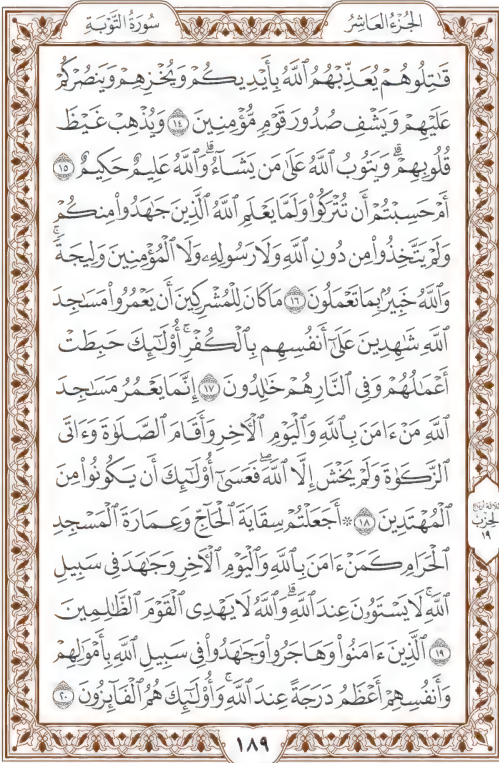 سُورَةُ التَّوْبَةِ
الجُزْءُ العَاشِرُ
قَٰتِلُوهُمْ يُعَذِّبْهُمُ ٱللَّهُ بِأَيْدِيكُمْ وَيُخْزِهِمْ وَيَنصُرْكُمْ
عَلَيْهِمْ وَيَشْفِ صُدُورَ قَوْمٍ مُّؤْمِنِينَ ١٤ وَيُذْهِبْ غَيْظَ
قُلُوبِهِمْ ۗ وَيَتُوبُ ٱللَّهُ عَلَىٰ مَن يَشَآءُ ۗ وَٱللَّهُ عَلِيمٌ حَكِيمٌ ١٥
أَمْ حَسِبْتُمْ أَن تُتْرَكُوا۟ وَلَمَّا يَعْلَمِ ٱللَّهُ ٱلَّذِينَ جَٰهَدُوا۟ مِنكُمْ
وَلَمْ يَتَّخِذُوا۟ مِن دُونِ ٱللَّهِ وَلَا رَسُولِهِۦ وَلَا ٱلْمُؤْمِنِينَ وَلِيجَةً ۚ
وَٱللَّهُ خَبِيرٌۢ بِمَا تَعْمَلُونَ ١٦ مَا كَانَ لِلْمُشْرِكِينَ أَن يَعْمُرُوا۟ مَسَٰجِدَ
ٱللَّهِ شَٰهِدِينَ عَلَىٰٓ أَنفُسِهِم بِٱلْكُفْرِ ۚ أُو۟لَٰٓئِكَ حَبِطَتْ
أَعْمَٰلُهُمْ وَفِى ٱلنَّارِ هُمْ خَٰلِدُونَ ١٧ إِنَّمَا يَعْمُرُ مَسَٰجِدَ
ٱللَّهِ مَنْ ءَامَنَ بِٱللَّهِ وَٱلْيَوْمِ ٱلْءَاخِرِ وَأَقَامَ ٱلصَّلَوٰةَ وَءَاتَى
ٱلزَّكَوٰةَ وَلَمْ يَخْشَ إِلَّا ٱللَّهَ ۖ فَعَسَىٰٓ أُو۟لَٰٓئِكَ أَن يَكُونُوا۟ مِنَ
ٱلْمُهْتَدِينَ ١٨ ۞ أَجَعَلْتُمْ سِقَايَةَ ٱلْحَآجِّ وَعِمَارَةَ ٱلْمَسْجِدِ
ٱلْحَرَامِ كَمَنْ ءَامَنَ بِٱللَّهِ وَٱلْيَوْمِ ٱلْءَاخِرِ وَجَٰهَدَ فِى سَبِيلِ
ٱللَّهِ ۚ لَا يَسْتَوُۥنَ عِندَ ٱللَّهِ ۗ وَٱللَّهُ لَا يَهْدِى ٱلْقَوْمَ ٱلظَّٰلِمِينَ
١٩ ٱلَّذِينَ ءَامَنُوا۟ وَهَاجَرُوا۟ وَجَٰهَدُوا۟ فِى سَبِيلِ ٱللَّهِ بِأَمْوَٰلِهِمْ
وَأَنفُسِهِمْ أَعْظَمُ دَرَجَةً عِندَ ٱللَّهِ ۚ وَأُو۟لَٰٓئِكَ هُمُ ٱلْفَآئِزُونَ ٢٠
الحِزْب
١٩
١٨٩